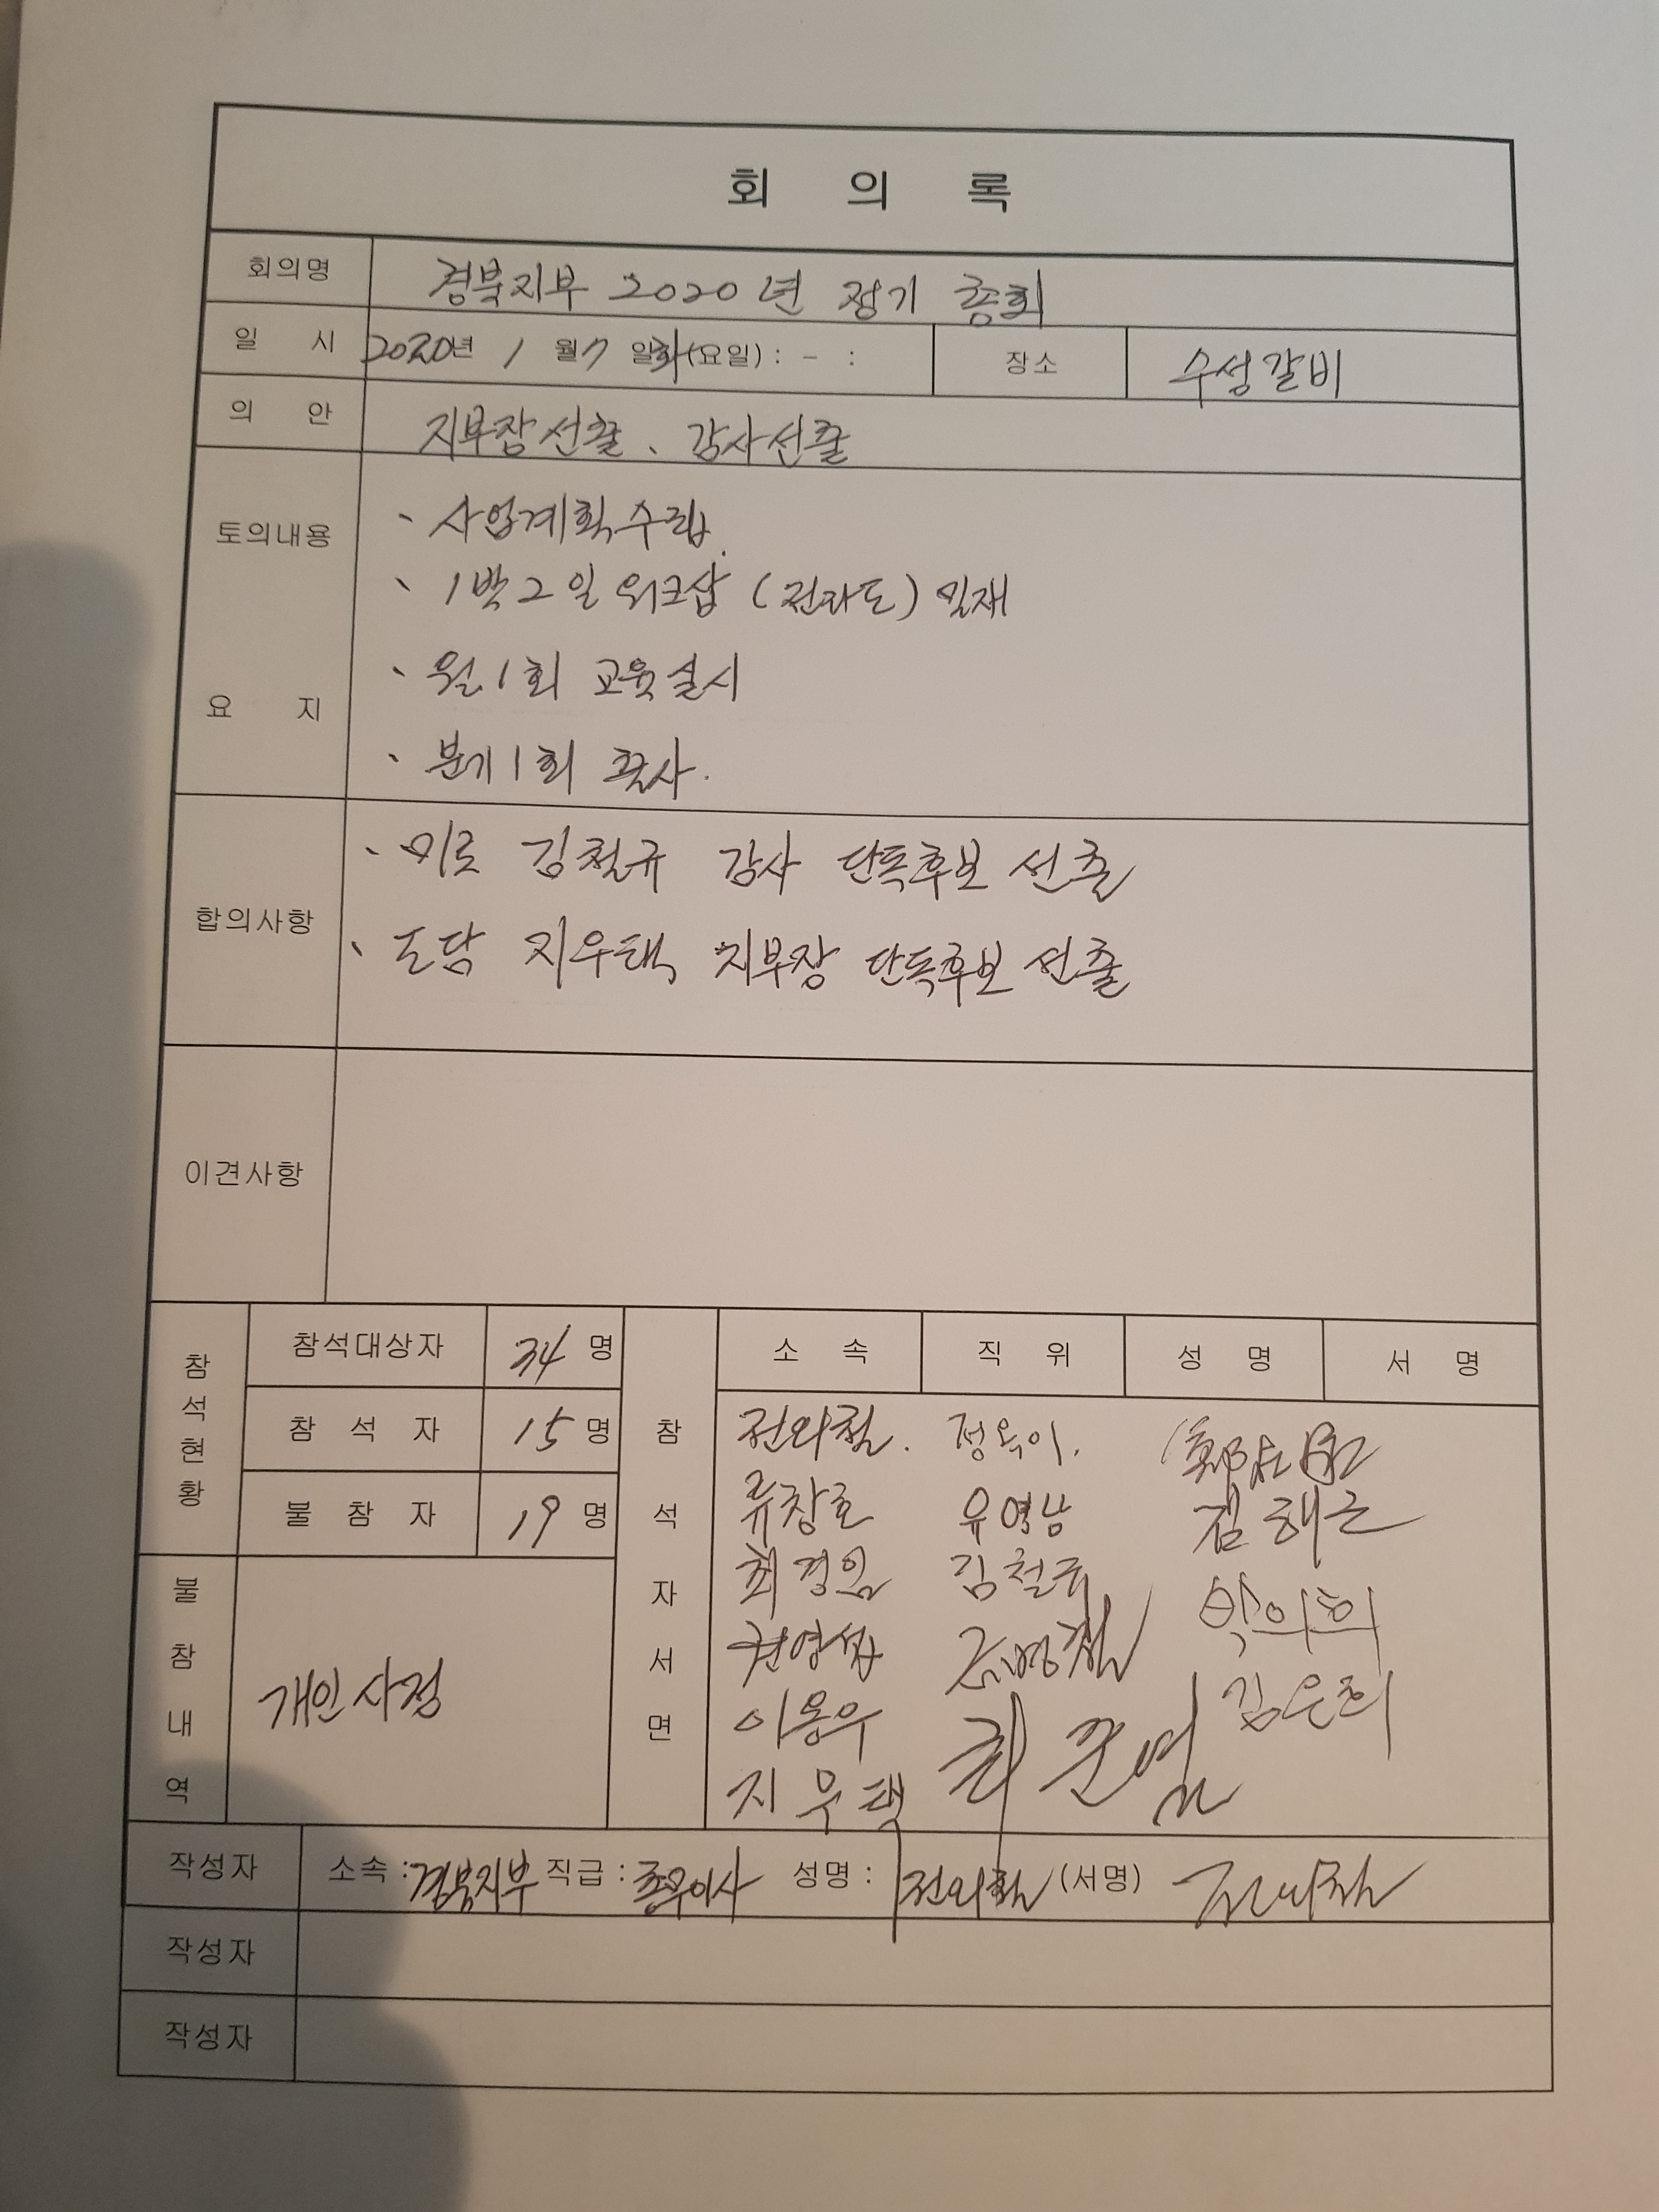 회 의 록
회의명 경북지부 2020년 정기 총회
일 시 2020년 1 월 7 일 화(요일) : - : 장소 수성갈비
의 안 지부장선출、감사선출
토의내용
요 지
、사업계획수립.
、1박2일 워크샵 (전라도) 목재
、월1회 교육실시
、분기1회 봉사.
합의사항
、미로 김철규 감사 단독후보 선출
、도담 지우택 지부장 단독후보 선출
이견사항
참석현황
참석대상자 34 명
참 석 자 15 명
불 참 자 19 명
불참내역
개인사정
참석자서면
소 속 직 위 성 명 서 명
정옥이.
류창호 우영남 김해근
최경임 김철규
권영섭
이용우 김은희
지우택 최준열
작성자 소속 : 경북지부 직급 : 총무이사 성명 : (서명)
작성자
작성자